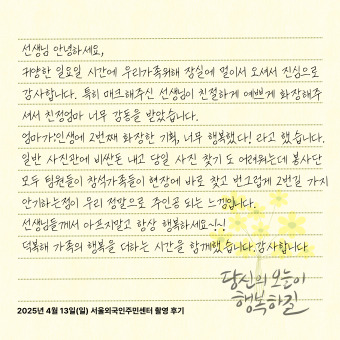 선생님 안녕하세요,
귀양한 일요일 시간에 우리가족위해 잠실에 멀이서 오셔서 진심으로
감사합니다. 특히 매크해주신 선생님이 친절하게 예쁘게 화장해주
셔서 친정엄마 너무 감동을 받았습니다.
엄마가:인생에 2번째 화장한 기회, 너무 행복했다! 라고 했습니다.
일반 사진관에 비싼돈 내고 당일 사진 찾기 도 어려웠는데 봉사단
모두 팀원들이 참석가족들이 현장에 바로 찾고 번그럽게 2번길 가지
안기하는점이 우리 정말로 주인공 되는 느낌입니다.
선생님들께서 아프지말고 항상 행복하세요~!~!
덕복해 가족의 행복을 더하는 시간을 함께했습니다.감사합니다
당신의 오늘이
행복하길
2025년 4월 13일(일) 서울외국인주민센터 촬영 후기